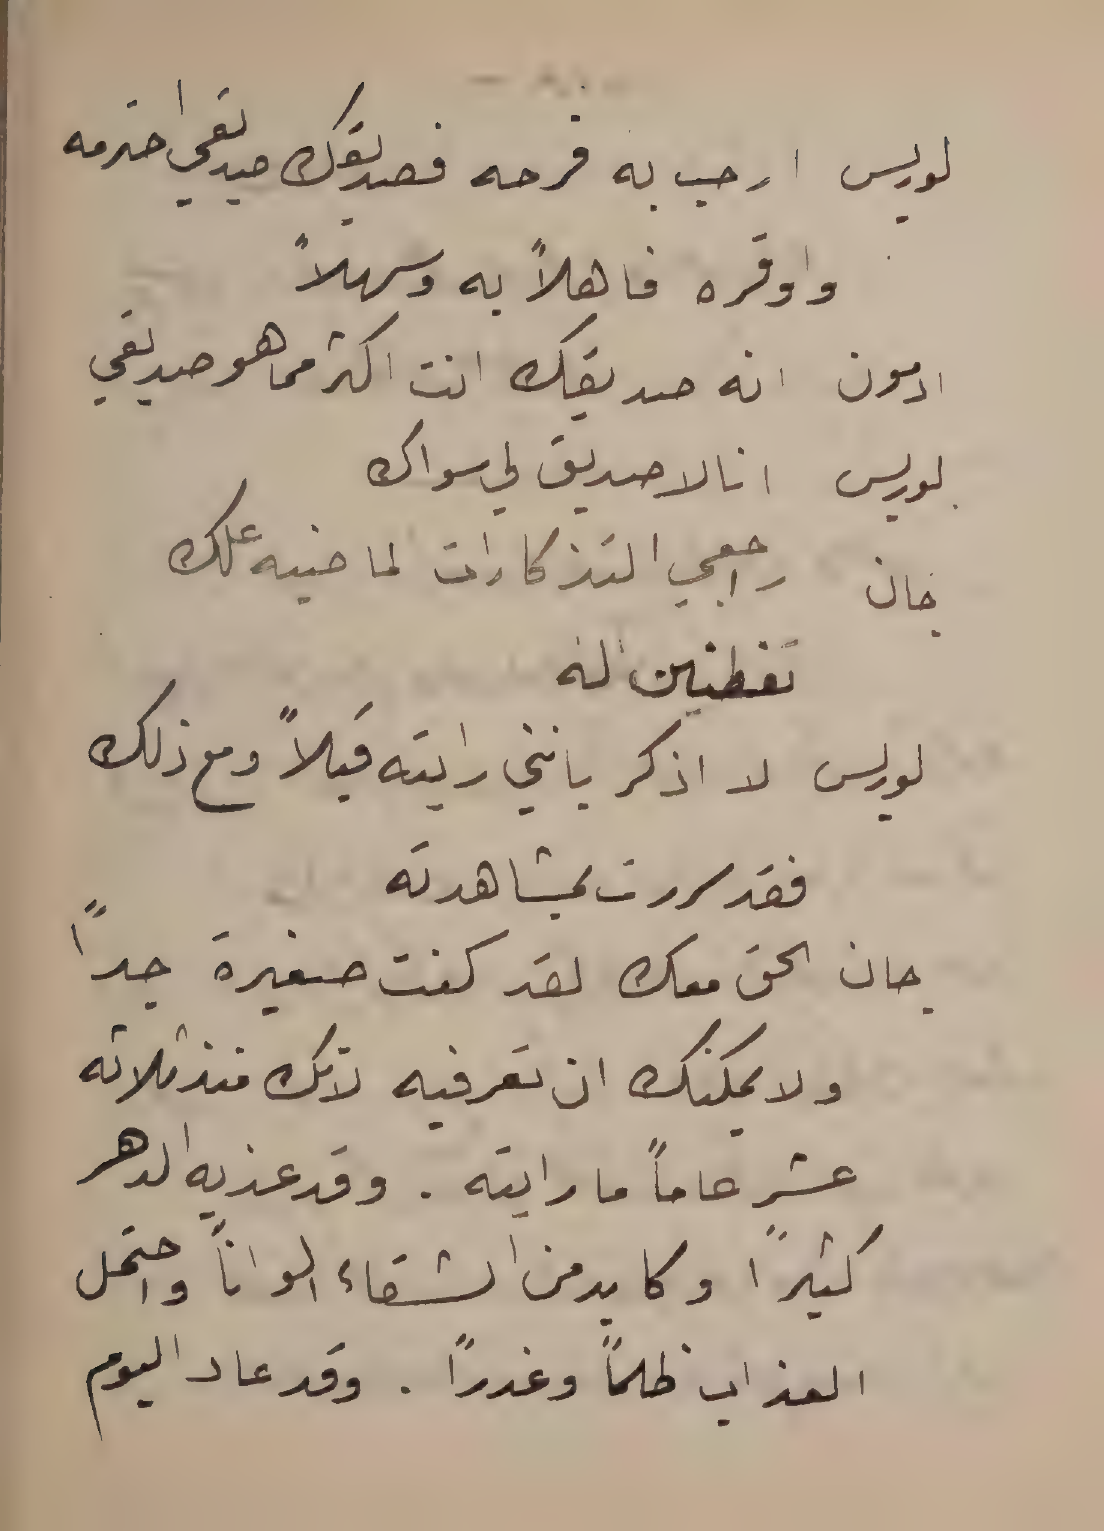 لويس ارحب به فرحه فصديقك صديقي احترمه
واوقره فاهلاً به وسهلاً
ادمون انه صديقك انت اكثر مما هو صديقي
لويس انا لا صديق لي سواك
جان راجعي التذكارات الماضيه علك
تفطنين له
لويس لا اذكر بانني رايته قبلاً ومع ذلك
فقد سررت بمشاهدته
جان الحق معك لقد كنت صغيرة جداً
ولا يمكنك ان تعرفيه لانك منذ ثلاثه
عشر عاماً ما رايته . وقد عذبه الدهر
كثيراً وكابد من الشقاء الواناً واحتمل
العذاب ظلماً وغدراً . وقد عاد اليوم